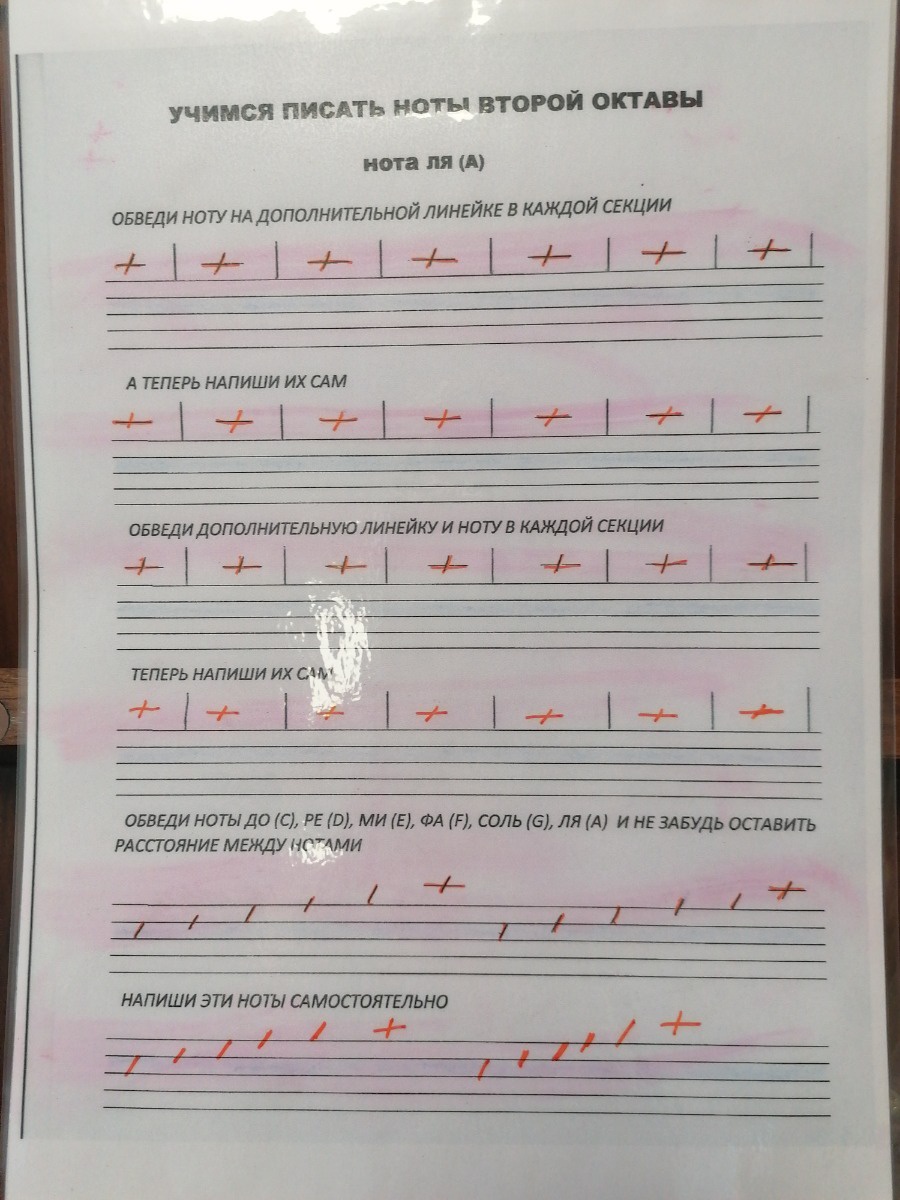 УЧИМСЯ ПИСАТЬ НОТЫ ВТОРОЙ ОКТАВЫ
нота ля (А)
ОБВЕДИ НОТУ НА ДОПОЛНИТЕЛЬНОЙ ЛИНЕЙКЕ В КАЖДОЙ СЕКЦИИ
А ТЕПЕРЬ НАПИШИ ИХ САМ
ОБВЕДИ ДОПОЛНИТЕЛЬНУЮ ЛИНЕЙКУ И НОТУ В КАЖДОЙ СЕКЦИИ
ТЕПЕРЬ НАПИШИ ИХ САМ
ОБВЕДИ НОТЫ ДО (C), РЕ (D), МИ (E), ФА (F), СОЛЬ (G), ЛЯ (A) И НЕ ЗАБУДЬ ОСТАВИТЬ
РАССТОЯНИЕ МЕЖДУ НОТАМИ
НАПИШИ ЭТИ НОТЫ САМОСТОЯТЕЛЬНО